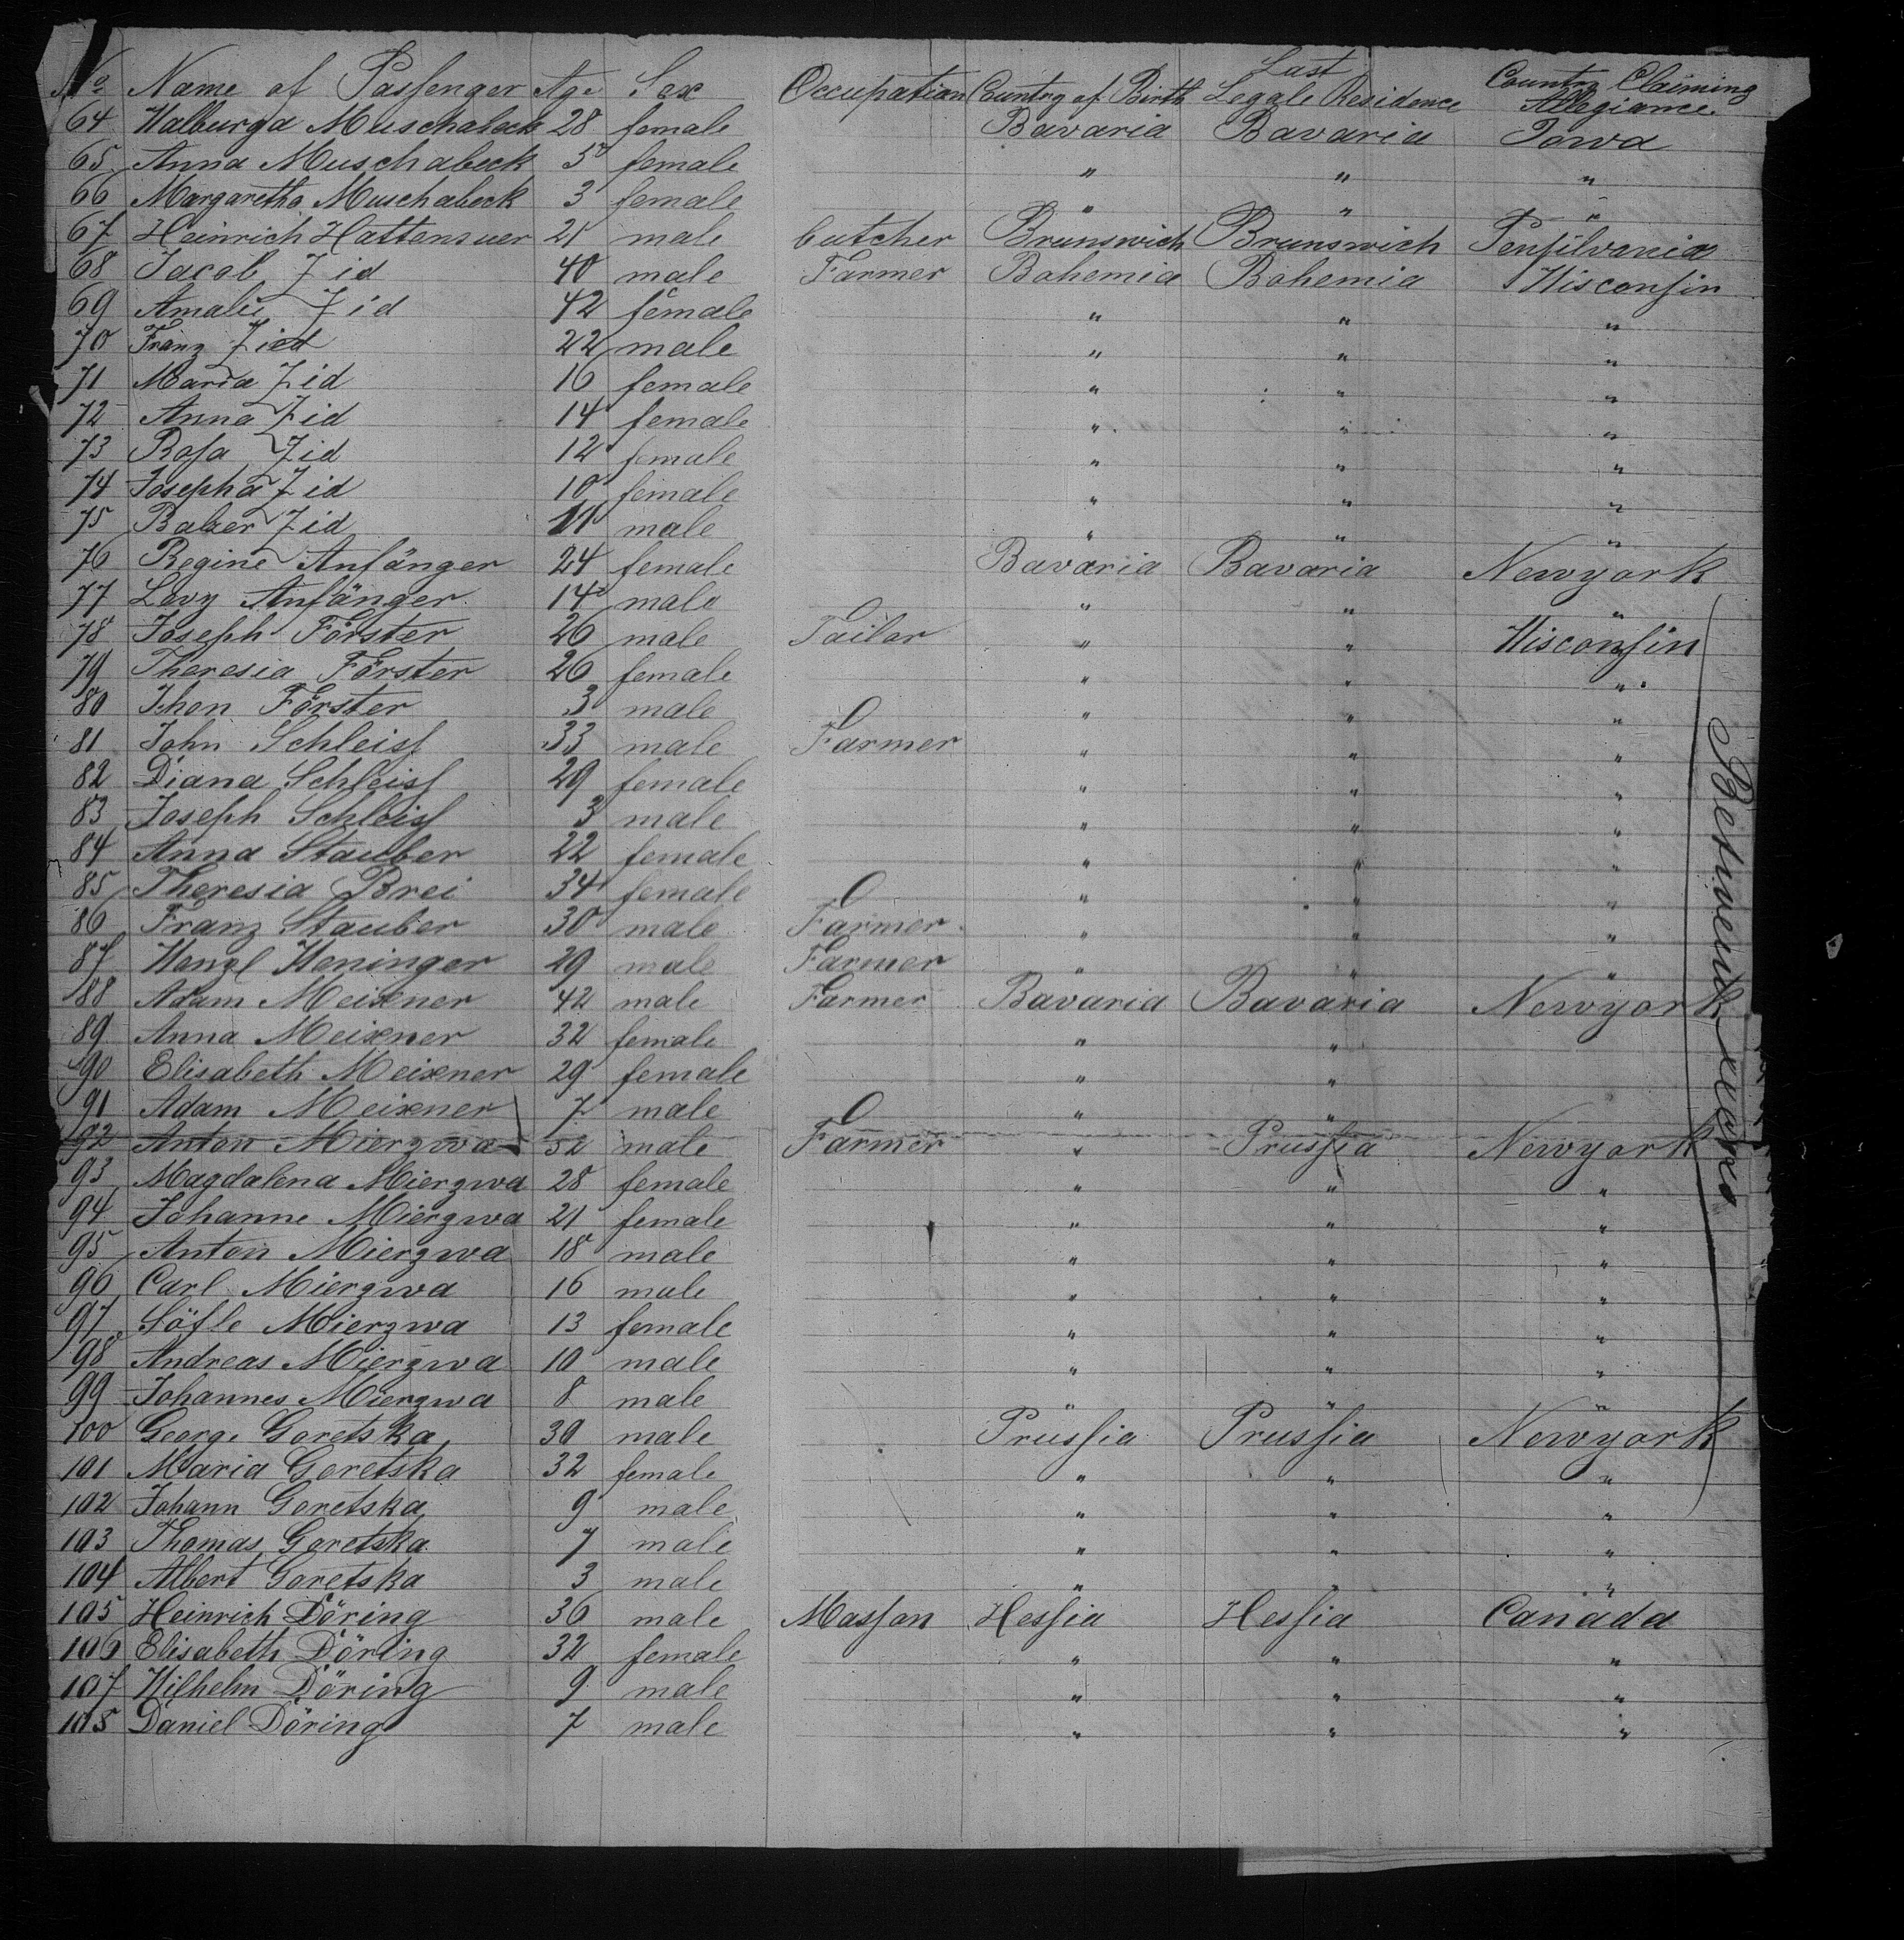 No Name of Passenger Age Sex Occupation Country of Birth Last Legale Residence Country Claiming Allegiance
64 Walburga Muschabeck 28 female Bavaria Bavaria Iowa
65 Anna Muschabeck 5 female " " "
66 Margaretha Muschabeck 3 female " " "
67 Heinrich Hattensuer 21 male butcher Brunswich Brunswich Pensilvania
68 Jacob Zid 40 male Farmer Bohemia Bohemia Wisconsin
69 Amalie Zid 42 female " " "
70 Franz Zid 22 male " " "
71 Maria Zid 16 female " " "
72 Anna Zid 14 female " " "
73 Rosa Zid 12 female " " "
74 Josepha Zid 10 female " " "
75 Balzer Zid 11 male " " "
76 Regine Anfänger 24 female Bavaria Bavaria Newyork
77 Levy Anfänger 14 male " " "
78 Joseph Förster 26 male Tailor " " Wisconsin
79 Theresia Förster 26 female " " "
80 Jhon Förster 3 male " " "
81 John Schleiss 33 male Farmer " " "
82 Diana Schleiss 29 female " " "
83 Joseph Schleiss 3 male " " "
84 Anna Stauber 22 female " " "
85 Theresia Brei 34 female " " "
86 Franz Stauber 30 male Farmer " " "
87 Wenzl Weninger 29 male Farmer " " "
88 Adam Meixner 42 male Farmer Bavaria Bavaria Newyork
89 Anna Meixner 32 female " "
90 Elisabeth Meixner 29 female " "
91 Adam Meixner 7 male " "
92 Anton Mierzwa 52 male Farmer " Prussia Newyork
93 Magdalena Mierzwa 28 female " " "
94 Johanne Mierzwa 21 female " " "
95 Anton Mierzwa 18 male " " "
96 Carl Mierzwa 16 male " " "
97 Söfle Mierzwa 13 female " " "
98 Andreas Mierzwa 10 male " " "
99 Johannes Mierzwa 8 male " " "
100 George Goretska 30 male Prussia Prussia Newyork
101 Maria Goretska 32 female " " "
102 Johann Goretska 9 male " " "
103 Thomas Goretska 7 male " " "
104 Albert Goretska 3 male " " "
105 Heinrich Döring 36 male Masson Hessia Hessia Canada
106 Elisabeth Döring 32 female " " "
107 Wilhelm Döring 9 male " " "
108 Daniel Döring 7 male " " "